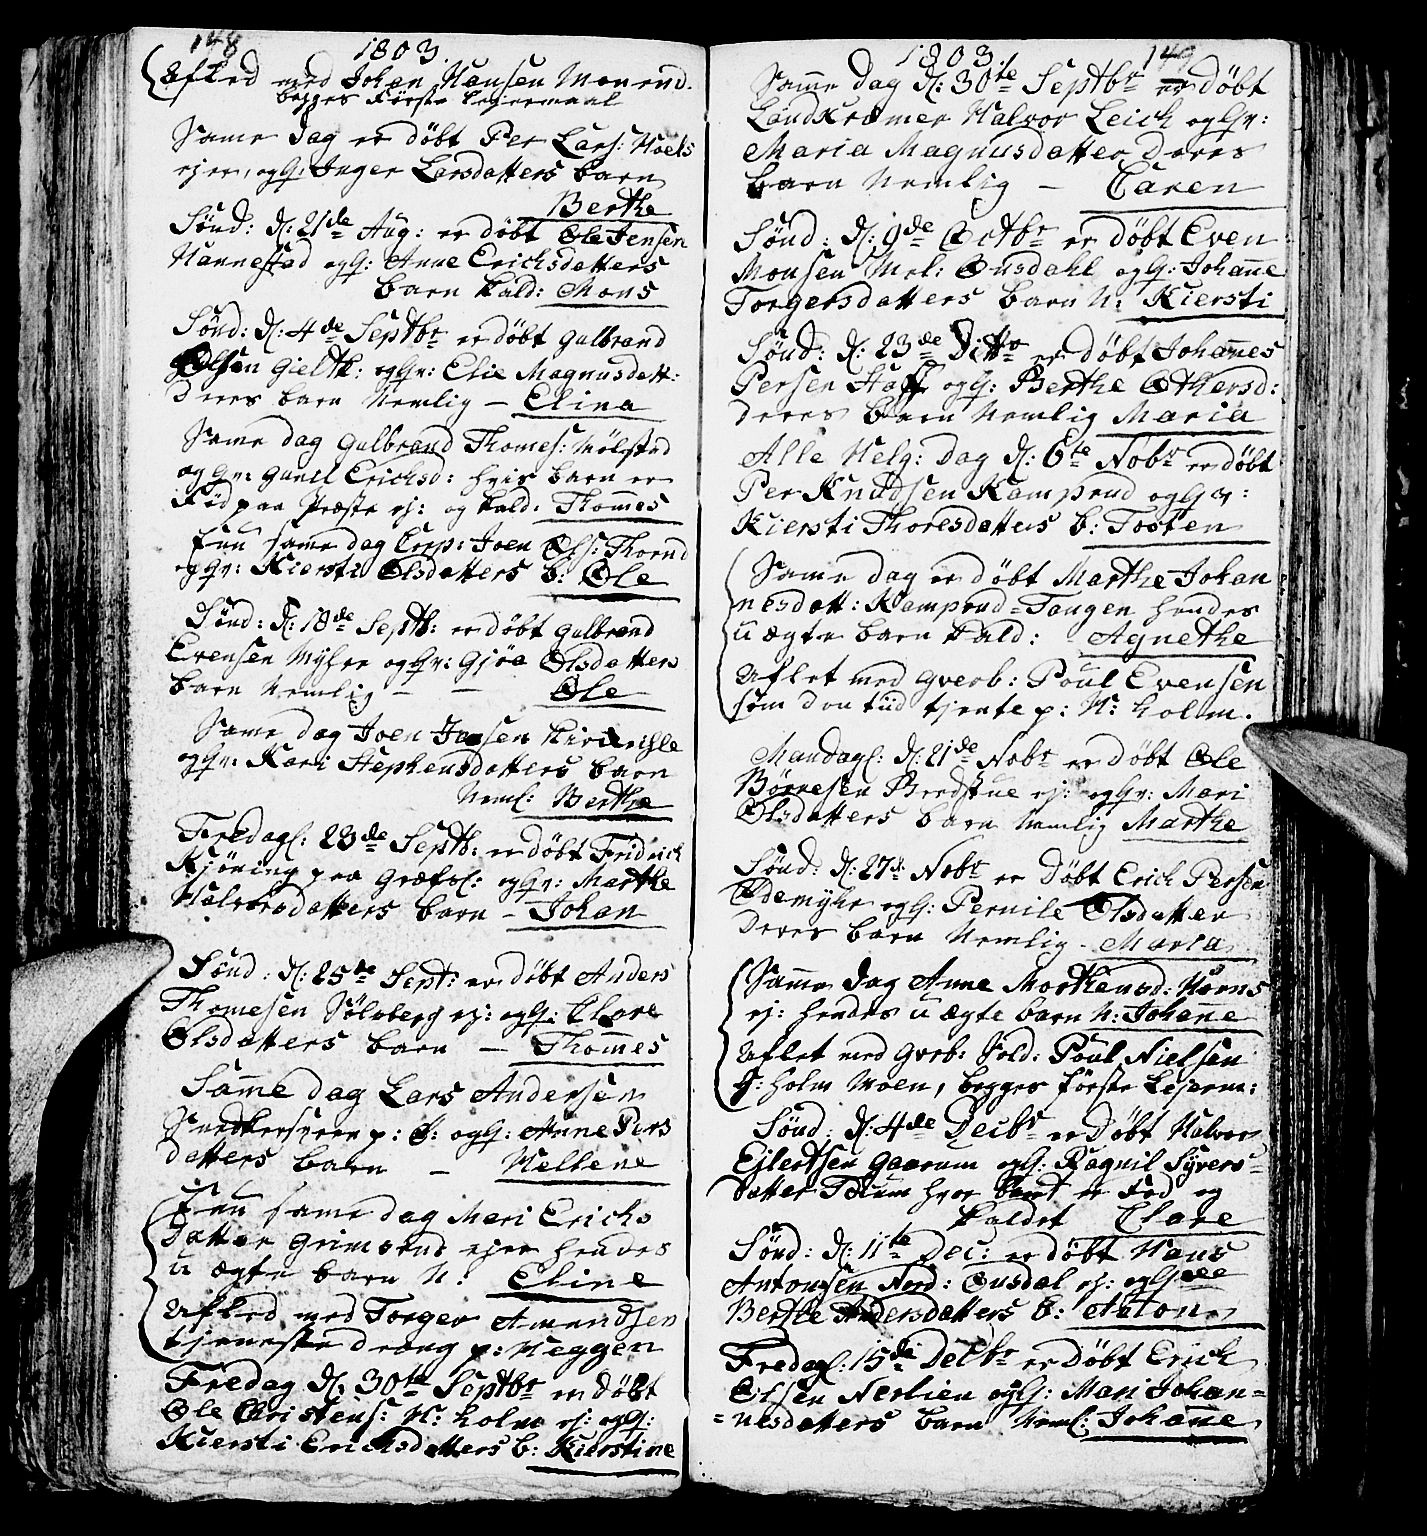 148
1803.
Afled med Johan Hansen Monend.
begges Første Leiermaal
Same dag er døbt Per Lars: Hoels
ejer, og G: Inger Larsdatters barn
Berthe
Sønd: d: 21de Aug: er døbt Ole Jensen
Hannestad og G: Anne Erichsdatters
barn kald: Mons
Sønd: d: 4de Septbr er døbt Gulbrand
Olsen Gielth: og Gv: Elie Magnusdatt:
Deres barn Nemlig – Elina
Same dag Gulbrand Thomes: Mølsted
og Gv: Gunil Erichsd: hvis barn er
Fød paa Præste ej: og kald: Thomes
samme dag Joen Ols:
og Gv: Kiersti Olsdatters b: Ole
Sønd: d: 18de Septb: er døbt Gulbrand
Evensen Myhre og Gv: Gjøa Olsdatters
barn Nemlig – – Ole
Same dag Joen Jansen
og Gv: Kari Stephensdatters barn
Neml: Berthe
Fredagl: 23de Septb: er døbt Fridrich
Kjøning paa Græfsl: og Gv: Marthe
Halvorsdatters barn – Johan
Sønd: d: 25de Sept: er døbt Anders
Thomesen Sølvberg ej: og G: Clare
Olsdatters barn – Thomes
Samme dag Lars Andersen
p: E: og G: Anne Pers
datters barn – Hellene
same dag Mari Erichs
Datter Grimsrud ejer hendes
u ægte barn N: Eline
Afled med Torger Amundsen
tjeneste dreng p: Heggen
Fredag d: 30te Septbr er døbt
Ole Christens: N: Holm ej: og G:
Kiersti Erichsdatters b: Kierstine
1803. 149
Samme dag d: 30te Septbr er døbt
Landkræmer Halvor Leich og Gv:
Maria Magnusdatter deres
barn Nemlig – Caren
Sønd: d: 9de Octbr er døbt Even
Monsen Mel: Ousdahl og G: Johanne
Torgersdatters barn N: Kiersti
Sønd: d: 23de Ditto er døbt Johannes
Persen Staff og G: Berthe Othersd:
deres barn Nemlig Maria
Alle Helg: Dag d: 6te Nobr er døbt
Per Knudsen Kamprud og Gv:
Kiersti Thoresdatters b: Tosten
Same dag er døbt Marthe Johan
nesdatt: Kamprud=Tangen hendes
u ægte barn kald: Agnethe
Aflet med gverb: Poul Evensen
som den tiid tjente p: N: Holm.
Mandagl: d: 21de Nobr er døbt Ole
Børresen Bredstue ej: og Gv: Mari
Olsdatters barn Nemlig Marthe
Sønd: d: 27de Nobr er døbt Erich Persen
Ødemyhr og G: Pernile Olsdatter
Deres barn Nemlig – Maria
Samme dag Anne Morthensd: Horns
ej: hendes u ægte barn N: Johanne
Aflet med gverb: Sold: Poul Nielsen
S: Holm Moen, begges første Lejerm:
Sønd: d: 4de Decbr er døbt Halvor
Ejlertsen Gaarum og G: Ragnil Syvers=
datter hvor barnet er Fød og
kaldet Clare
Sønd: d: 11te Dec: er døbt Hans
Antonsen Nord: Ousdal ej: og G
Berthe Andersdatters b: Anton
Fredagl: 15de Decbr er døbt Erich
Olsen Nerlien og G: Mari Johan=
=nesdatters barn Neml: Johanne